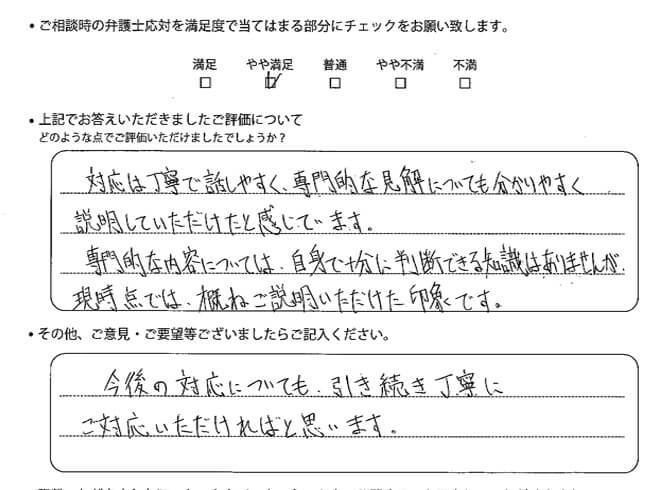 • ご相談時の弁護士応対を満足度で当てはまる部分にチェックをお願い致します。
満足 やや満足 普通 やや不満 不満
□ ☑ □ □ □
• 上記でお答えいただきましたご評価について
どのような点でご評価いただけましたでしょうか？
対応は丁寧で話しやすく、専門的な見解についても分かりやすく
説明していただけたと感じています。
専門的な内容については、自身で十分に判断できる知識はありませんが、
現時点では、概ねご説明いただけた印象です。
• その他、ご意見・ご要望等ございましたらご記入ください。
今後の対応についても、引き続き丁寧に
ご対応いただければと思います。